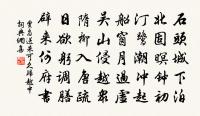 石頭城下泊
北固暝鐘初
汀鷺潮沖起
船窗月過虛
吳山侵越眾
隋柳入唐疏
日欲躬調膳
辟來何府書
賈島送朱可久歸越中
詞典網集